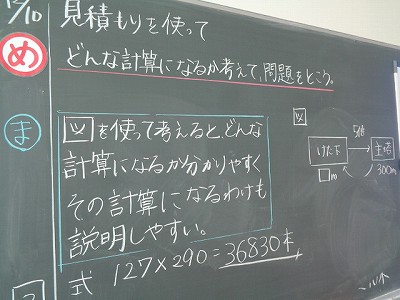 12/10
見積もりを使って
め
どんな計算になるか考えて、問題をとこう。
ま
図を使って考えると、どんな
計算になるか分かりやすく
その計算になるわけも
説明しやすい。
式 127×290=36830本
図
5倍
けた下
主塔
□m
300m